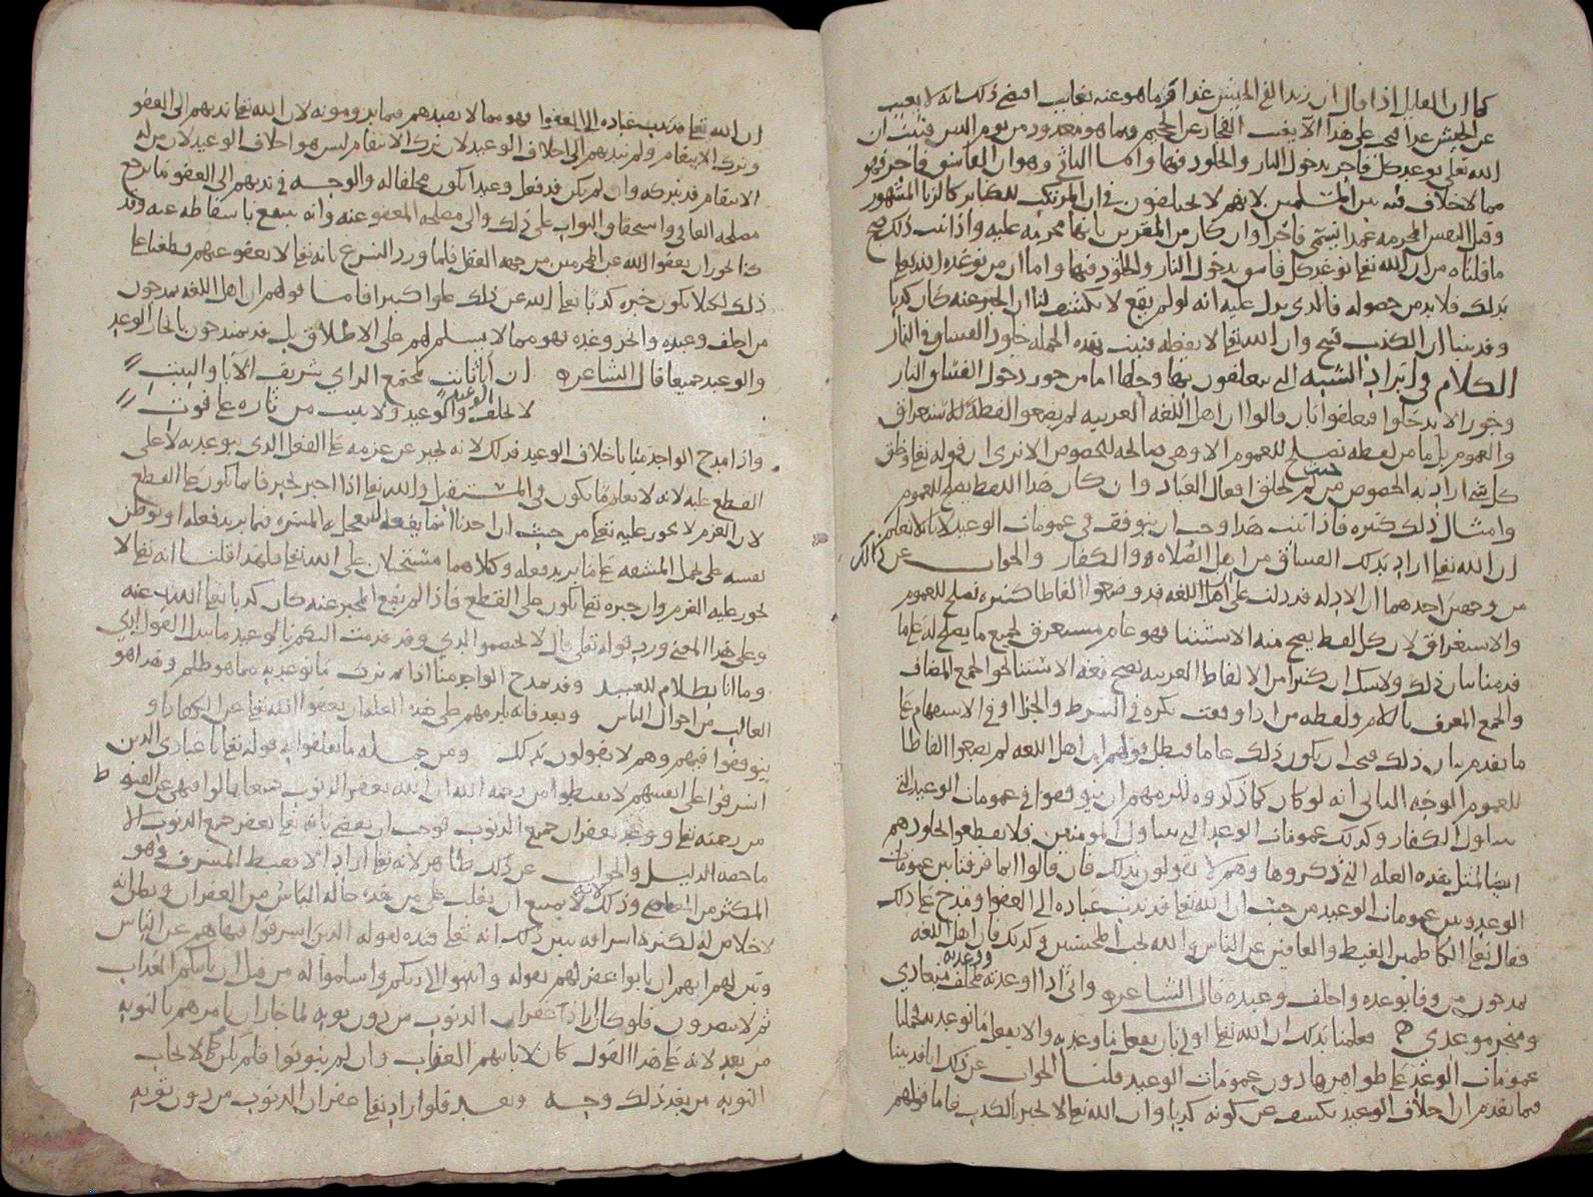 كما ان القايل اذا قال ان زيدا في الجيش غدا قرما هو عنه بغايب اقتضى ذلك انه لا يغيب
عن الجيش غدا فيجب على هذا ألا يغيب الفجار عن الجحيم وما هو معدود من يوم الدين فثبت ان
الله تعالى توعد كل فاجر بدخول النار والخلود فيها واما الثاني وهو ان الفاسق فاجر فهو
مما لا خلاف فيه بين المسلمين لانهم لا يختلفون في ان المرتكب للفضائح كالزنا المشهور
وقتل النفس المحرمه عمدا يسمى فاجرا وان كان من المقرين بانها محرمه عليه واذا ثبت ذلك صح
ما قلناه من ان الله تعالى توعد كل فاسق بدخول النار والخلود فيها واما ان من توعده الله تعالى
بذلك فلا بد من حصوله فالذي يدل عليه انه لو لم يقع لانكشف لنا ان الخبر عنه كان كذبا
وقد بينا ان الكذب قبيح وان الله تعالى لا يفعله فثبت بهذه الجمله خلود الفساق في النار
الكلام في ايراد الشبه التي يتعلقون بها وحلها اما من جوز دخول الفساق النار
وجوز الا يدخلوا فتعلقوا بان قالوا ان اهل اللغه العربيه لم يضعوا لفظة للاستغراق
والعموم بل ما من لفظه تصلح للعموم الا وهي صالحه للخصوص الا ترى ان قوله تعالى وخلق
كل شي اراد به الخصوص من حيث لم يخلق افعال العباد وان كان هذا اللفظ يصلح للعموم
وامثال ذلك كثيره فاذا ثبت هذا وجب ان يتوقف في عمومات الوعيد لانا لا نعلم
ان الله تعالى اراد بذلك الفساق من اهل الصلاه او الكفار والجواب عن ذلك
من وجهين احدهما ان الادله قد دلت على ان اهل اللغه قد وضعوا الفاظا كثيره تصلح للعموم
والاستغراق لان كل لفظ يصح منه الاستثنا فهو عام مستغرق لجميع ما يصلح له على ما
قدمنا بيان ذلك ولا شك ان كثيرا من الالفاظ العربيه يصح معه الاستثنا نحو الجمع المضاف
والجمع المعرف باللام ولفظه من اذا وقعت نكره في الشرط والجزا او في الاستفهام على
ما تقدم بيان ذلك فيجب ان يكون ذلك عاما فبطل قولهم ان اهل اللغه لم يضعوا الفاظا
للعموم الوجه الثاني انه لو كان كما ذكروه للزمهم ان يتوقفوا في عمومات الوعيد التي
تتناول الكفار وكذلك عمومات الوعد التي تتناول المومنين فلا يقطعوا بخلودهم
ايضا لمثل هذه العله التي ذكروها وهم لا يقولون بذلك فان قالوا انما فرقنا بين عمومات
الوعد وبين عمومات الوعيد من حيث ان الله تعالى قد ندب عباده الى العفو ومدح على ذلك
فقال تعالى والكاظمين الغيظ والعافين عن الناس والله يحب المحسنين وكذلك فان اهل اللغه
يمدحون من وفا بوعده واخلف وعيده قال الشاعر واني اذا اوعدته او وعدته لمخلف ميعادي
ومنجز موعدي فعلمنا بذلك ان الله تعالى اولى بان يفعل ما وعد به والا يفعل ما توعد به فحملنا
عمومات الوعد على ظواهرها دون عمومات الوعيد قلنا الجواب عن ذلك انا قد بينا
فيما تقدم ان اخلاف الوعيد يكشف عن كونه كذبا وان الله تعالى لا يخبر بالكذب فاما قولهم
ان الله تعالى قد ندب عباده الى العفو فهو مما لا يفيدهم فيما يرومونه لان الله تعالى ندبهم الى العفو
وترك الانتقام ولم يندبهم الى اخلاف الوعيد لان ترك الانتقام ليس هو اخلاف الوعيد لان من له
الانتقام قد يتركه وان لم يكن قد فعل وعيدا يكون مخلفا له والوجه في ندبهم الى العفو ما يرجع
مصلحه العافي واستحقاق الثواب على ذلك والى مصلحه المعفو عنه وانه ينتفع باسقاطه عنه وقد
كنا نجوز ان يعفو الله عن المجرمين من جهه العقل فلما ورد الشرع بانه تعالى لا يعفو عنهم قطعنا على
ذلك لئلا يكون خبره كذبا تعالى الله عن ذلك علوا كبيرا فاما قولهم ان اهل اللغه يمدحون
من اخلف وعيده وانجز وعده فهو مما لا يسلم لهم على الاطلاق بل قد يمتدحون بانجاز الوعد
والوعيد جميعا قال الشاعر ان أبا ثابت لمجتمع الراي شريف الآبا والبيت
لا يخلف الوعد والوعيد ولا يبيت من ثاره على فوت
واذا مدح الواحد منا باخلاف الوعيد فذلك لانه يخبر عن عزمه على الفعل الذي يتوعد به لا على
القطع عليه لانه لا يعلم ما يكون في المستقبل والله تعالى اذا اخبر بخبر فانما يكون على القطع
لان العزم لا يجوز عليه تعالى من حيث ان احدنا انما يفعله لتعجل المسره فيما يريد فعله او يوطن
نفسه على تحمل المشقه على ما يريد فعله وكلاهما مستحيلان على الله تعالى فلهذا قلنا انه تعالى لا
يجوز عليه العزم وان خبره تعالى يكون على القطع فاذا لم يقع المخبر عنه كان كذبا تعالى الله عنه
وعلى هذا المعنى ورد قوله تعالى قال لا تختصموا لدي وقد قدمت اليكم بالوعيد ما يبدل القول لدي
وما انا بظلام للعبيد وقد يمدح الواحد منا اذا ترك ما توعد به مما هو ظلم وهذا هو
الغالب من احوال الناس وبعد فانه يلزمهم على هذه العله ان يعفو الله تعالى عن الكفار او
يتوقفوا فيهم وهم لا يقولون بذلك ومن جمله ما تعلقوا به قوله تعالى يا عبادي الذين
اسرفوا على انفسهم لا تقنطوا من رحمه الله ان الله يغفر الذنوب جميعا قالوا فنهى عن القنوط
من رحمته تعالى ووعد بغفران جميع الذنوب فوجب ان نقضي بانه تعالى يغفر جميع الذنوب الا
ما خصه الدليل والجواب عن ذلك ظاهر لانه تعالى اراد الا يقنط المسرف وهو
المكثر من المعاصي وذلك لانه لا يمتنع ان يغلب على من هذه حاله الياس من الغفران ويظن انه
لا خلاص له لكثره اسرافه بين ذلك انه تعالى قيده بقوله الذين اسرفوا فنهاهم عن الياس
وبين لهم انهم ان تابوا غفر لهم بقوله وانيبوا الى ربكم واسلموا له من قبل ان ياتيكم العذاب
ثم لا تنصرون فلو كان اراد غفران الذنوب من دون توبه لما جاز ان يامرهم بالتوبه
من بعد لانه على هذا القول كان لا ياتيهم العذاب وان لم يتوبوا فلم يكن لايجاب
التوبه من بعد ذلك وجه وبعد فلو اراد تعالى غفران الذنوب من دون توبه